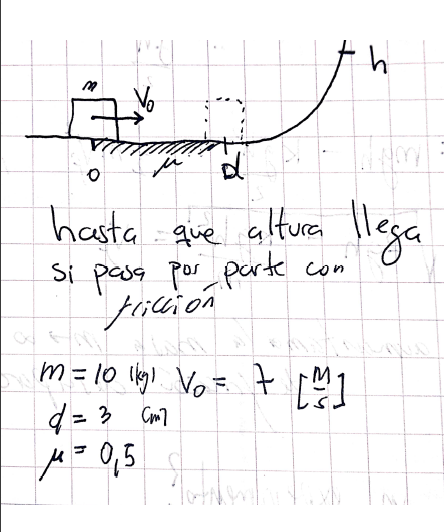 m
V₀
h
0
μ
d
hasta que altura llega
si pasa por parte con
fricción
m = 10 [kg] V₀ = 7 [m/s]
d = 3 [m]
μ = 0,5